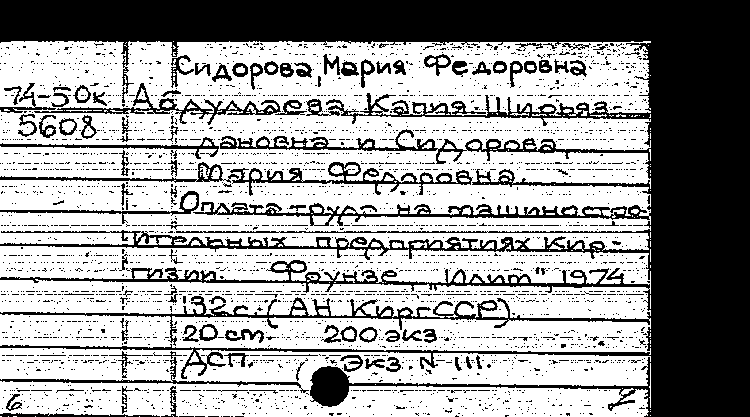 Сидорова, Мария Федоровна
74-50к Абдуллаева, Капия Ширьяз-
5608
дановна и Сидорова,
Мария Федоровна.
Оплата труда на машиностро-
ительных предприятиях Кир-
гизии. Фрунзе, "Илим", 1974.
132 с. (АН КиргССР)
20 см. 200 экз.
ДСП. Экз. N 111.
6